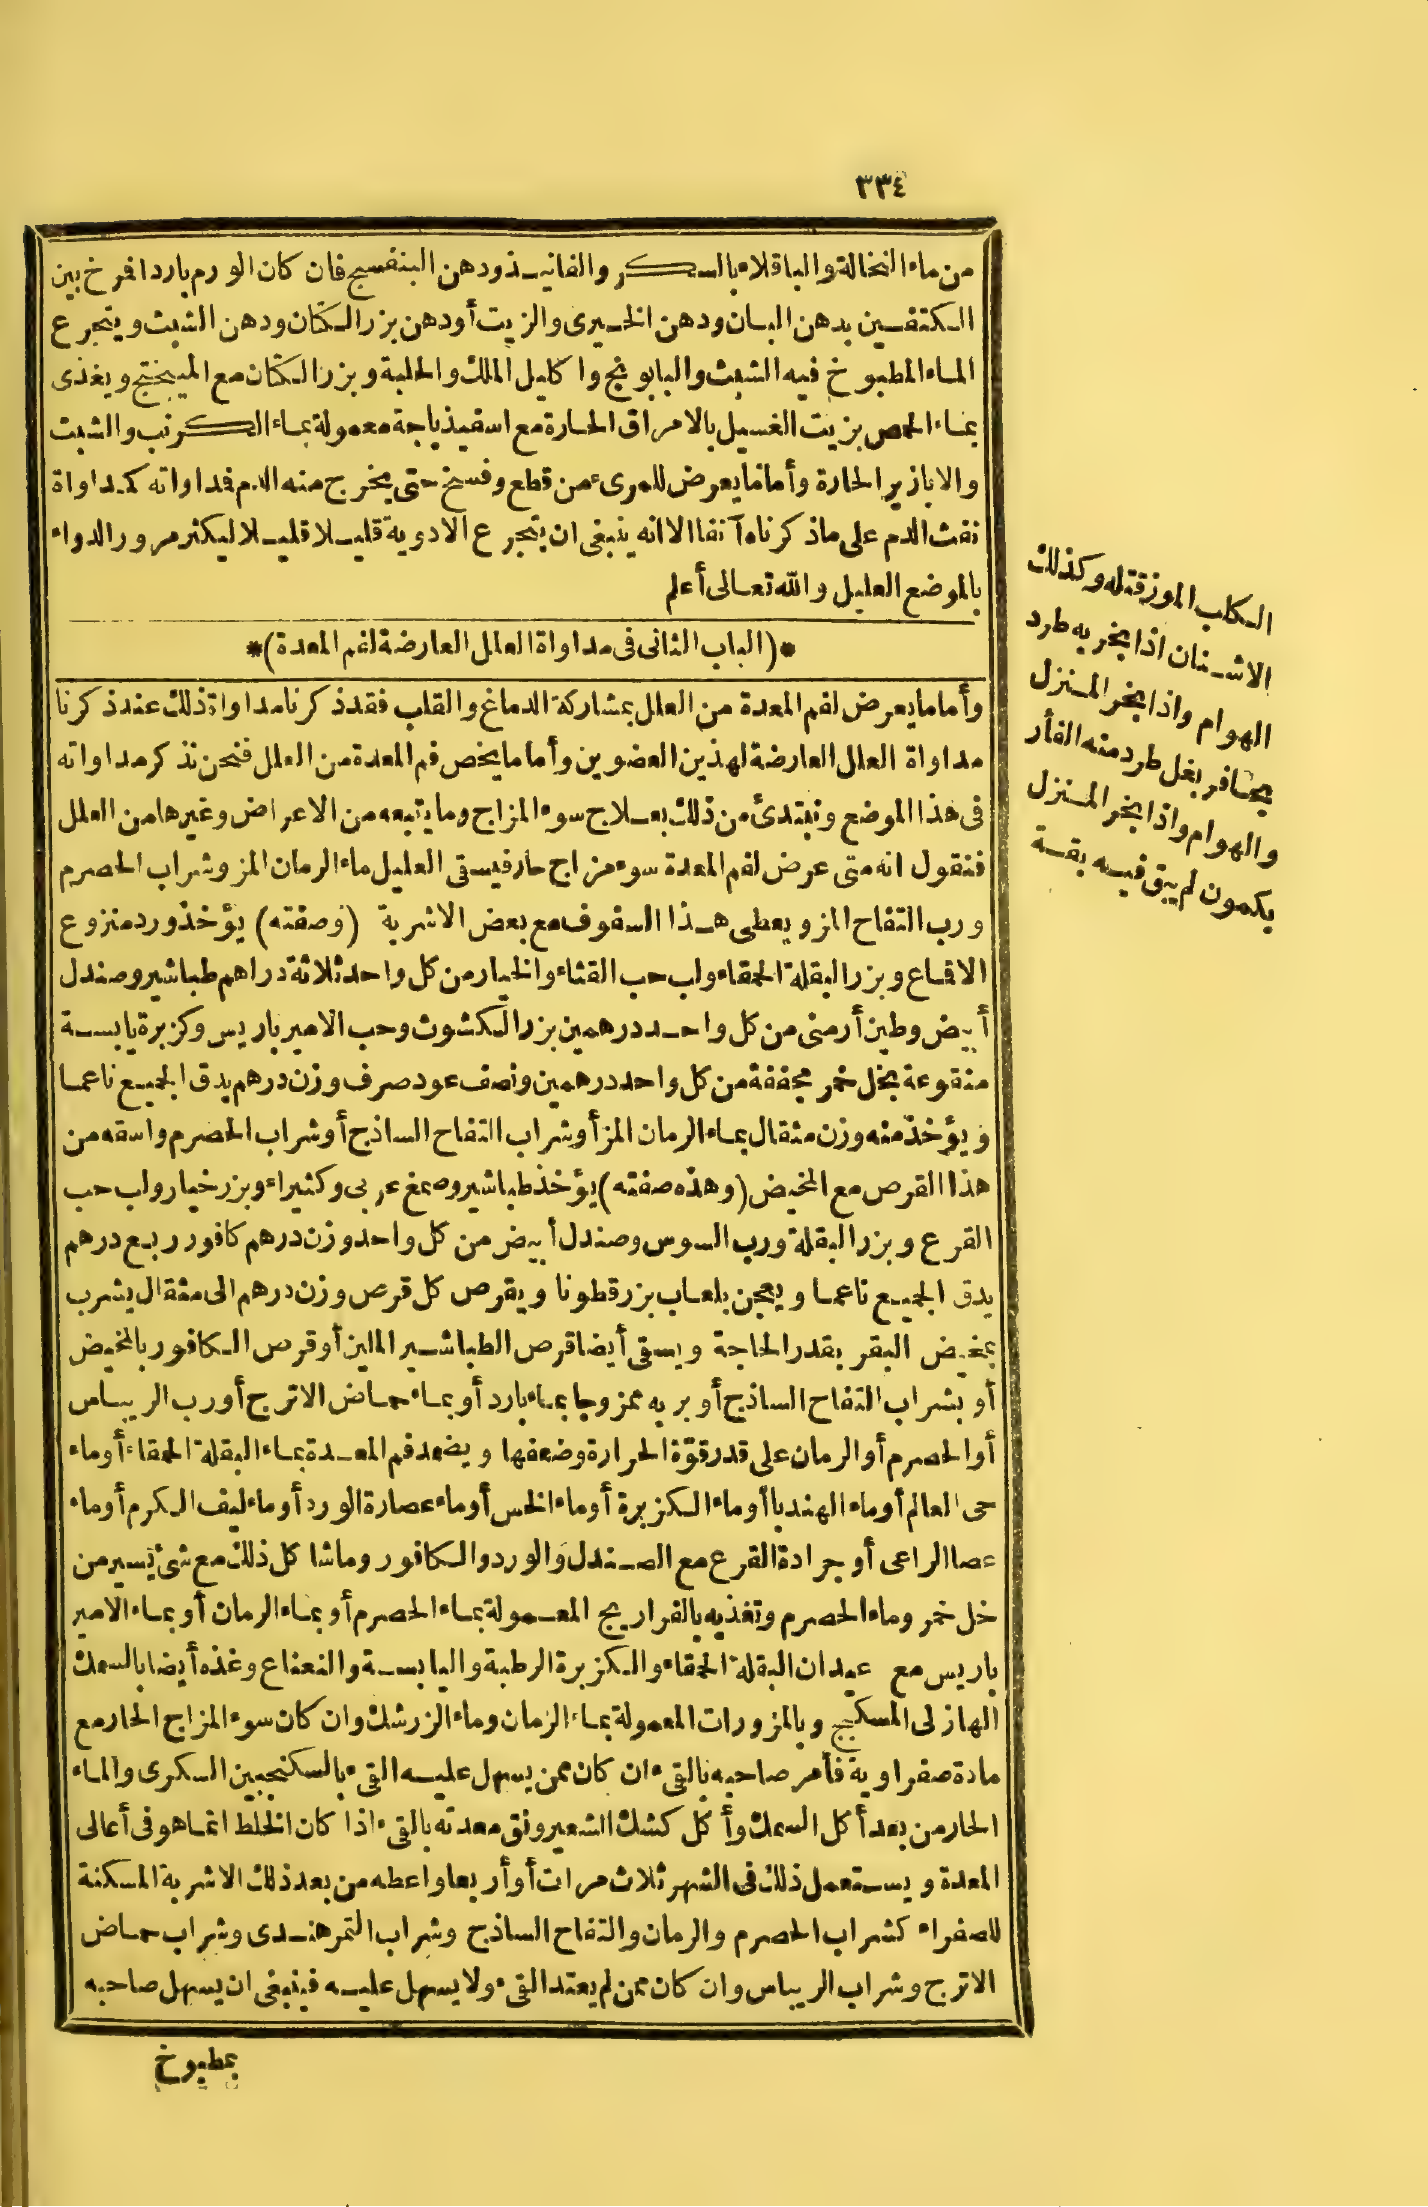 ٣٣٤
من ماء النخالة والباقلاء بالسكر والفانيذ ودهن البنفسج فان كان الورم باردا فمرخ بين
الكتفين بدهن البان ودهن الخيرى والزيت أودهن بزر الكتان ودهن الشبث ويتجرع
الماء المطبوخ فيه الشبث والبابونج واكليل الملك والحلبة وبزر الكتان مع الميبختج ويغذى
بماء الحمص بزيت الغسيل بالامراق الحارة مع اسفيذباجة معمولة بماء الكرنب والشبت
والابازير الحارة وأما ما يعرض للمرىء من قطع وفسخ حتى يخرج منه الدم فداواته كمداواة
نفث الدم على ماذكرناه آنفا الا انه ينبغى ان يتجرع الادوية قليلا قليلا ليكثر مرور الدواء
بالموضع العليل والله تعالى أعلم
*(الباب الثانى فى مداواة العلل العارضة لفم المعدة)*
وأما ما يعرض لفم المعدة من العلل بمشاركة الدماغ والقلب فقد ذكرنا مداواة ذلك عند ذكرنا
مداواة العلل العارضة لهذين العضوين وأما ما يخص فم المعدة من العلل فنحن نذكر مداواته
فى هذا الموضع ونبتدئ من ذلك بعلاج سوء المزاج وما يتبعه من الاعراض وغيرها من العلل
فنقول انه متى عرض لفم المعدة سوء مزاج حار فيسقى العليل ماء الرمان المز وشراب الحصرم
ورب التفاح المز ويعطى هذا السفوف مع بعض الاشربة (وصفته) يؤخذ ورد منزوع
الاقماع وبزر البقلة الحمقاء ولب حب القثاء والخيار من كل واحد ثلاثة دراهم طباشير وصندل
أبيض وطين أرمنى من كل واحد درهمين بزر الكشوث وحب الامير باريس وكزبرة يابسة
منقوعة بخل خمر مجففة من كل واحد درهمين ونصف عود صرف وزن درهم يدق الجميع ناعما
ويؤخذ منه وزن مثقال بماء الرمان المز أو شراب التفاح الساذج أو شراب الحصرم واسقه من
هذا القرص مع المخيض (وهذه صفته) يؤخذ طباشير وصمغ عربى وكثيراء وبزر خيار ولب حب
القرع وبزر البقلة ورب السوس وصندل أبيض من كل واحد وزن درهم كافور ربع درهم
يدق الجميع ناعما ويعجن بلعاب بزر قطونا ويقرص كل قرص وزن درهم الى مثقال يشرب
بمخيض البقر بقدر الحاجة ويسقى أيضا قرص الطباشير الملين أو قرص الكافور بالمخيض
أو بشراب التفاح الساذج أو بربه ممزوجا بماء بارد أو بماء حماض الاترج أو رب الريباس
أو الحصرم أو الرمان على قدر قوّة الحرارة وضعفها ويضمد فم المعدة بماء البقلة الحمقاء أو ماء
حى العالم أو ماء الهندبا أو ماء الكزبرة أو ماء الخس أو ماء عصارة الورد أو ماء ليف الكرم أو ماء
عصا الراعى أو جرادة القرع مع الصندل والورد والكافور وما شاكل ذلك مع شئ يسير من
خل خمر وماء الحصرم وتغذيه بالفراريج المعمولة بماء الحصرم أو بماء الرمان أو بماء الامير
باريس مع عيدان البقلة الحمقاء والكزبرة الرطبة واليابسة والنعناع وغذه أيضا بالسمك
الهازلى المسكبج وبالمزورات المعمولة بماء الرمان وماء الزرشك وان كان سوء المزاج الحار مع
مادة صفراوية فأمر صاحبه بالقىء ان كان ممن يسهل عليه القىء بالسكنجبين السكرى والماء
الحار من بعد أكل السمك وأكل كشك الشعير ونق معدته بالقىء اذا كان الخلط انما هو فى أعالى
المعدة ويستعمل ذلك فى الشهر ثلاث مرات أو أربعا واعطه من بعد ذلك الاشربة المسكنة
للصفراء كشراب الحصرم والرمان والتفاح الساذج وشراب التمر هندى وشراب حماض
الاترج وشراب الريباس وان كان ممن لم يعتد القىء ولا يسهل عليه فينبغى ان يسهل صاحبه
بمطبوخ
الكلاب الموز قتله وكذلك
الاشنان اذا بخر به طرد
الهوام واذا بخر المنزل
بحافر بغل طرد منه الفأر
والهوام واذا بخر المنزل
بكمون لم يبق فيه بقة